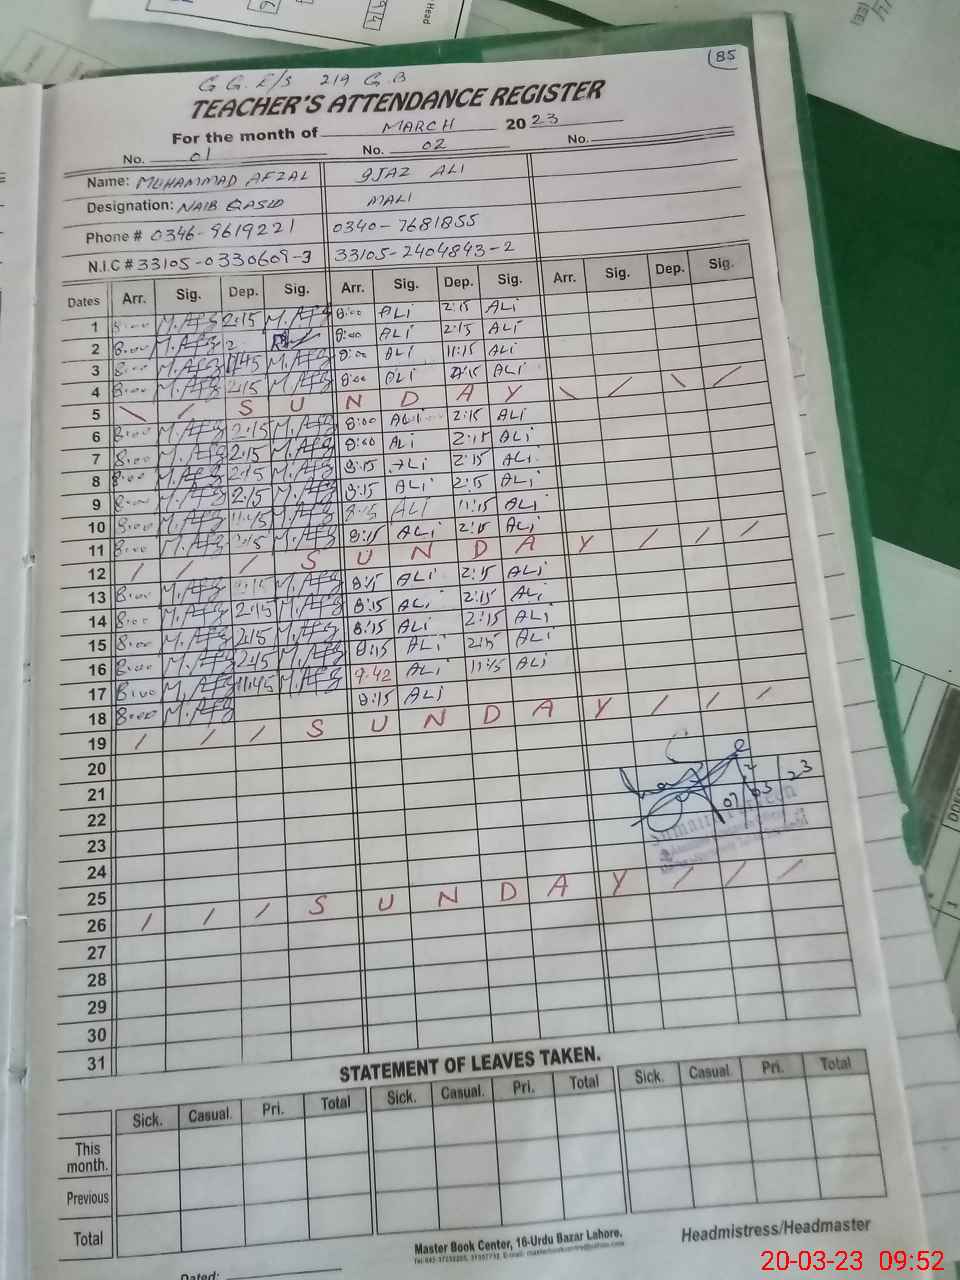 85
G G. E/S 219 G.B
TEACHER'S ATTENDANCE REGISTER
For the month of MARCH 2023
No. 01 No. 02 No.
Name: MUHAMMAD AFZAL IJAZ ALI
Designation: NAIB QASID MALI
Phone # 0346-9619221 0340-7681855
N.I.C # 33105-0330609-3 33105-2404843-2
Dates Arr. Sig. Dep. Sig. Arr. Sig. Dep. Sig. Arr. Sig. Dep. Sig.
1 8:00 M.Afz 2:15 M.Afz 8:00 ALi 2:15 ALi
2 8:00 M.Afz 2 8:00 ALi 2:15 ALi
3 8:00 M.Afz 11:45 M.Afz 8:00 ALi 11:15 ALi
4 8:00 M.Afz 2:15 M.Afz 8:00 ALi 2:15 ALi
5 S U N D A Y
6 8:00 M.Afz 2:15 M.Afz 8:00 ALi 2:15 ALi
7 8:00 M.Afz 2:15 M.Afz 8:00 ALi 2:15 ALi
8 8:00 M.Afz 2:15 M.Afz 8:15 ALi 2:15 ALi
9 8:00 M.Afz 2:15 M.Afz 8:15 ALi 2:15 ALi
10 8:00 M.Afz 11:45 M.Afz 8:15 ALI 11:15 ALi
11 8:00 M.Afz 2:15 M.Afz 8:15 ALi 2:15 ALi
12 / / / S U N D A Y / / /
13 8:00 M.Afz 2:15 M.Afz 8:15 ALi 2:15 ALi
14 8:00 M.Afz 2:15 M.Afz 8:15 ALi 2:15 ALi
15 8:00 M.Afz 2:15 M.Afz 8:15 ALi 2:15 ALi
16 8:00 M.Afz 2:15 M.Afz 8:15 ALi 2:15 ALi
17 8:00 M.Afz 11:45 M.Afz 9:42 ALi 11:45 ALi
18 8:00 M.Afz 8:15 ALi
19 / / / S U N D A Y / / /
20
21
07/03/23
22
23
24
25
26 / / / S U N D A Y / / /
27
28
29
30
31
STATEMENT OF LEAVES TAKEN.
Sick. Casual. Pri. Total Sick. Casual. Pri. Total Sick. Casual. Pri. Total
This month.
Previous
Total
Master Book Center, 16-Urdu Bazar Lahore.
Headmistress/Headmaster
Dated:
20-03-23 09:52